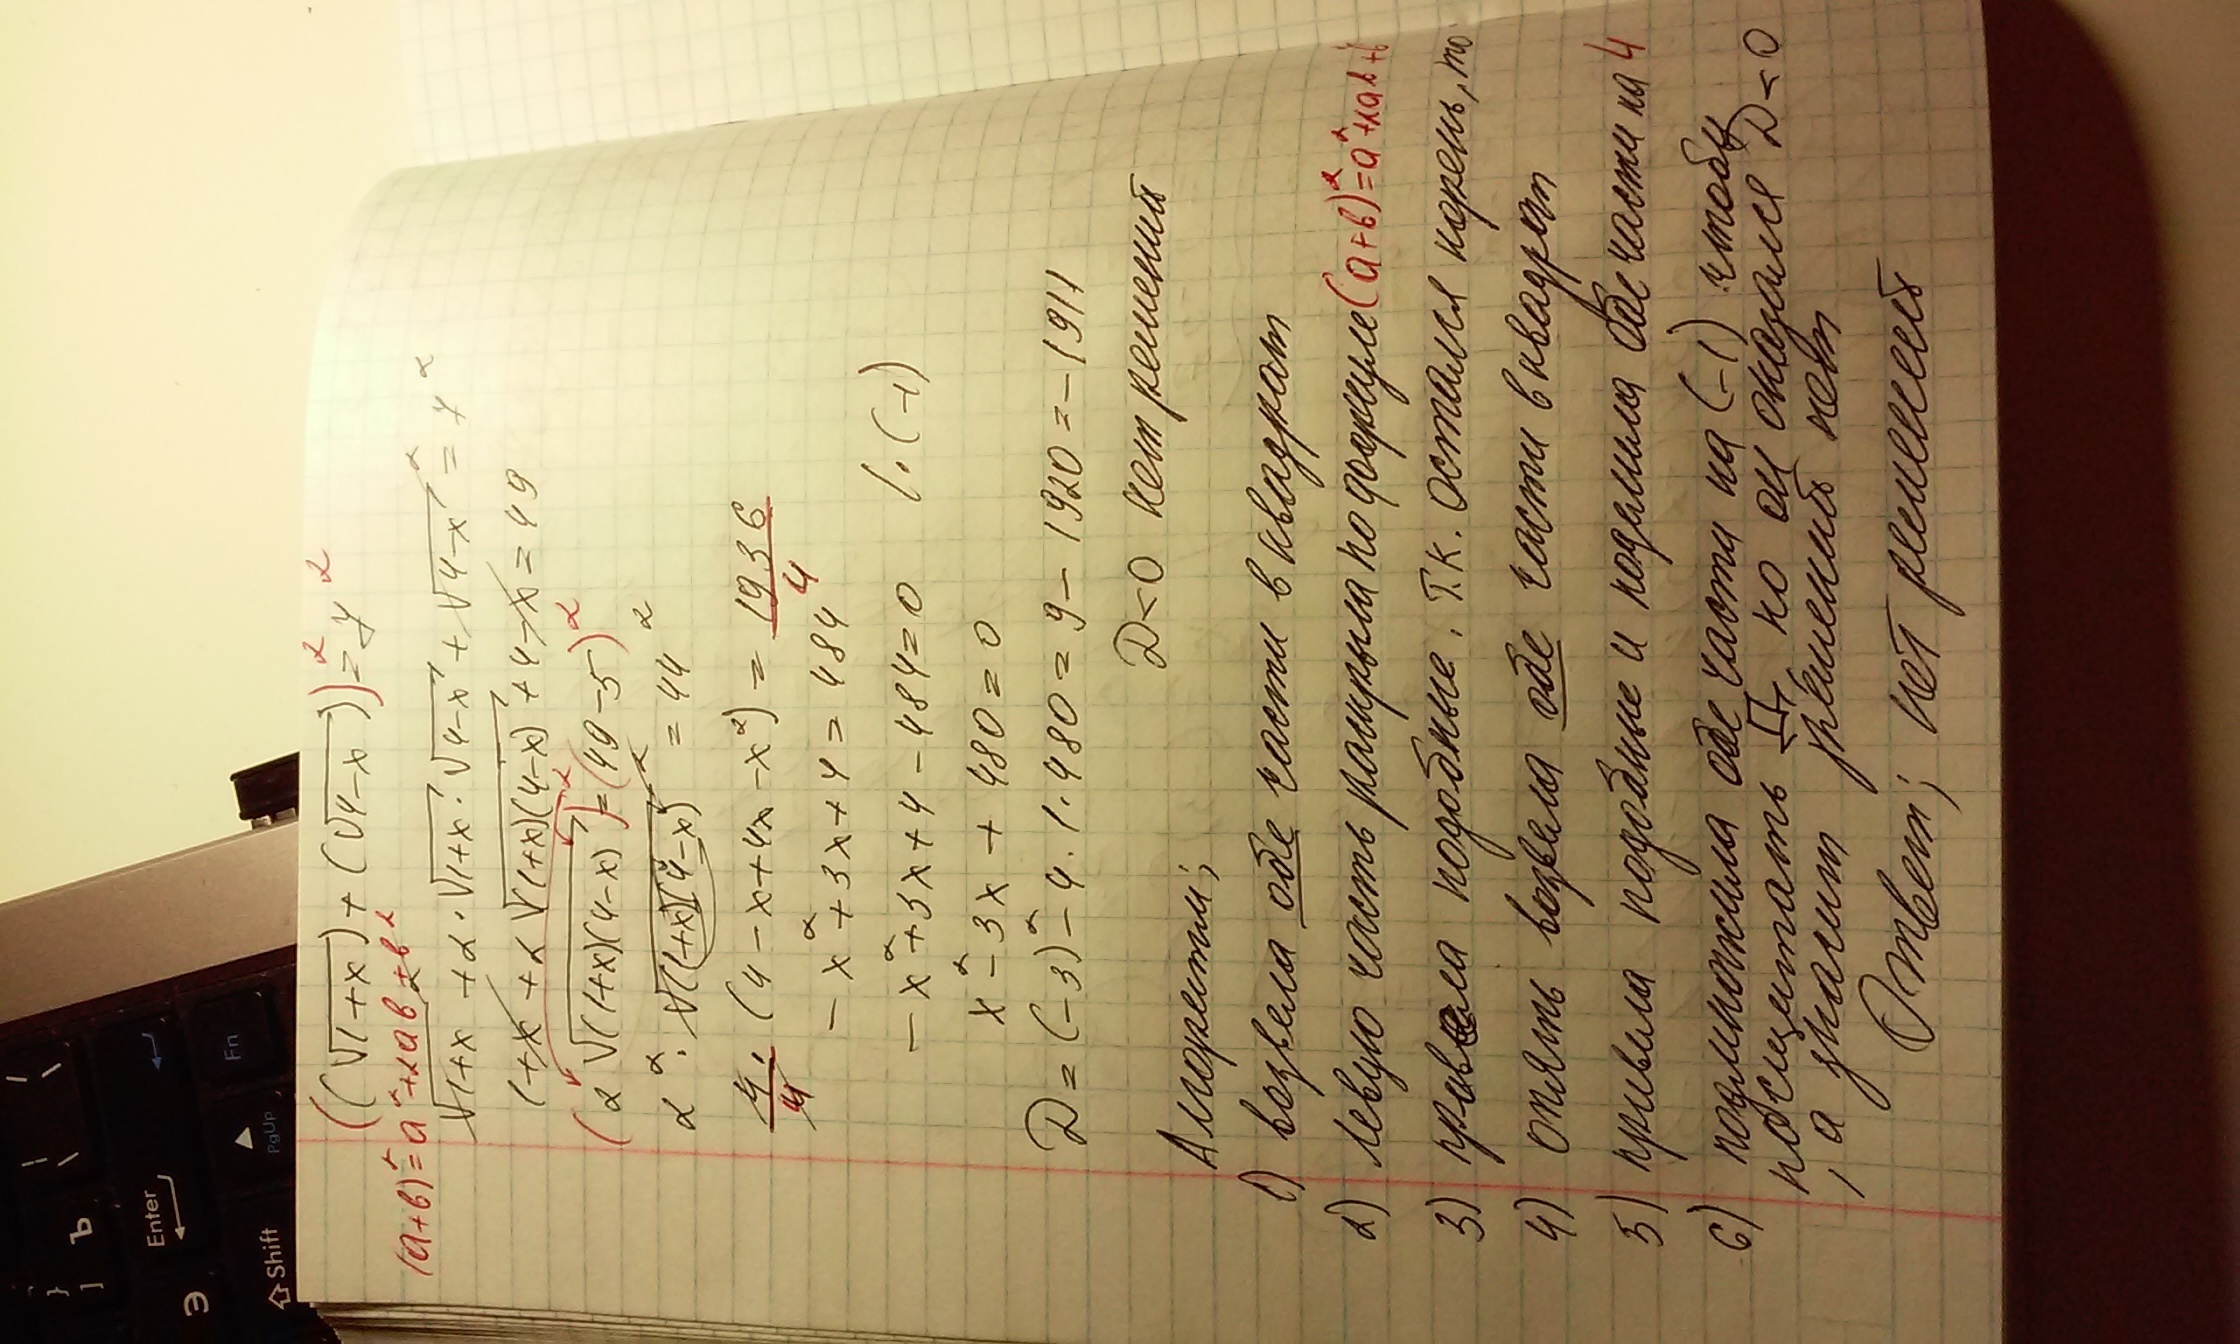 ((√1+x)+(√4-x))²=7²
(a+b)²=a²+2ab+b²
√1+x²+2·√1+x·√4-x+√4-x²=7²
1+x+2√(1+x)(4-x)+4-x=49
(2√(1+x)(4-x))²=(49-5)²
2²·√(1+x)(4-x)²=44²
4·(4-x+4x-x²)=1936
4 4
-x²+3x+4=484
-x²+3x+4-484=0 |·(-1)
x²-3x+480=0
D=(-3)²-4·1·480=9-1920=-1911
D<0 нет решений
Алгоритм;
1) возвела обе части в квадрат
2) левую часть раскрыла по формуле (a+b)²=a²+2ab+b
3) привела подобные. Т.к. остался корень, то
4) опять возвела обе части в квадрат
5) привела подобные и поделила обе части на 4
6) помножила обе части на (-1) чтобы
посчитать Д но он оказался D<0
, а значит решений нет
Ответ; нет решений
Э
Ъ
}
]
Enter
Shift
PgUp
Fn
!
\
/